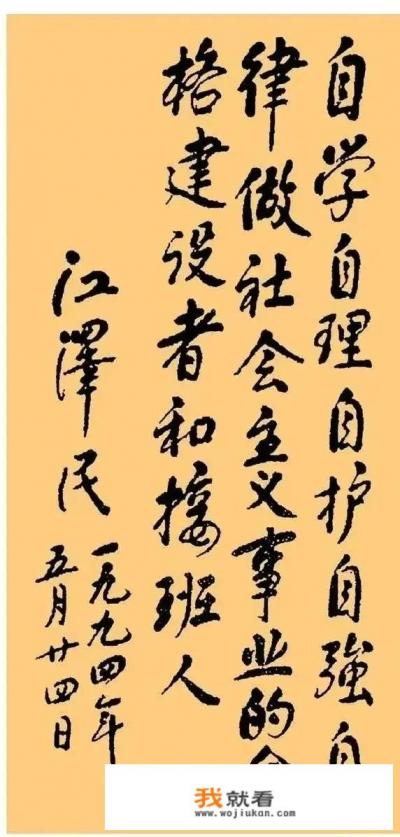 自学自理自护自強自
律做社会主义事业的
格建设者和接班人
江澤民
一九九四年
五月廿四日
我就看
www.wojiukan.com